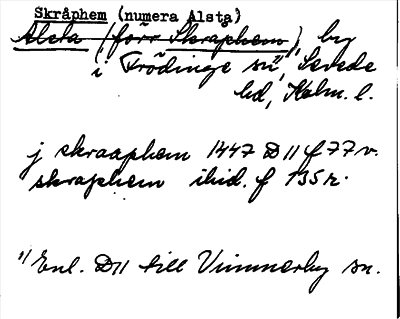 Skråphem (numera Alsta)
Alsta (förr Skraphem), by
i Frödinge sn¹⁾, Sevede
hd, Kalm. l.
j skraaphem 1447 D 11 f 77 v.
skraphem ibid. f 135 r.
¹⁾ Enl. D11 till Vimmerby sn.